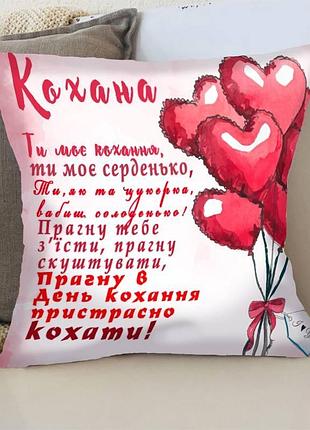 Кохана
Ти моє кохання,
ти моє серденько,
Ти, як та цукерка,
вабиш солоденько!
Прагну тебе
з'їсти, прагну
скуштувати,
Прагну в
День кохання
пристрасно
кохати!